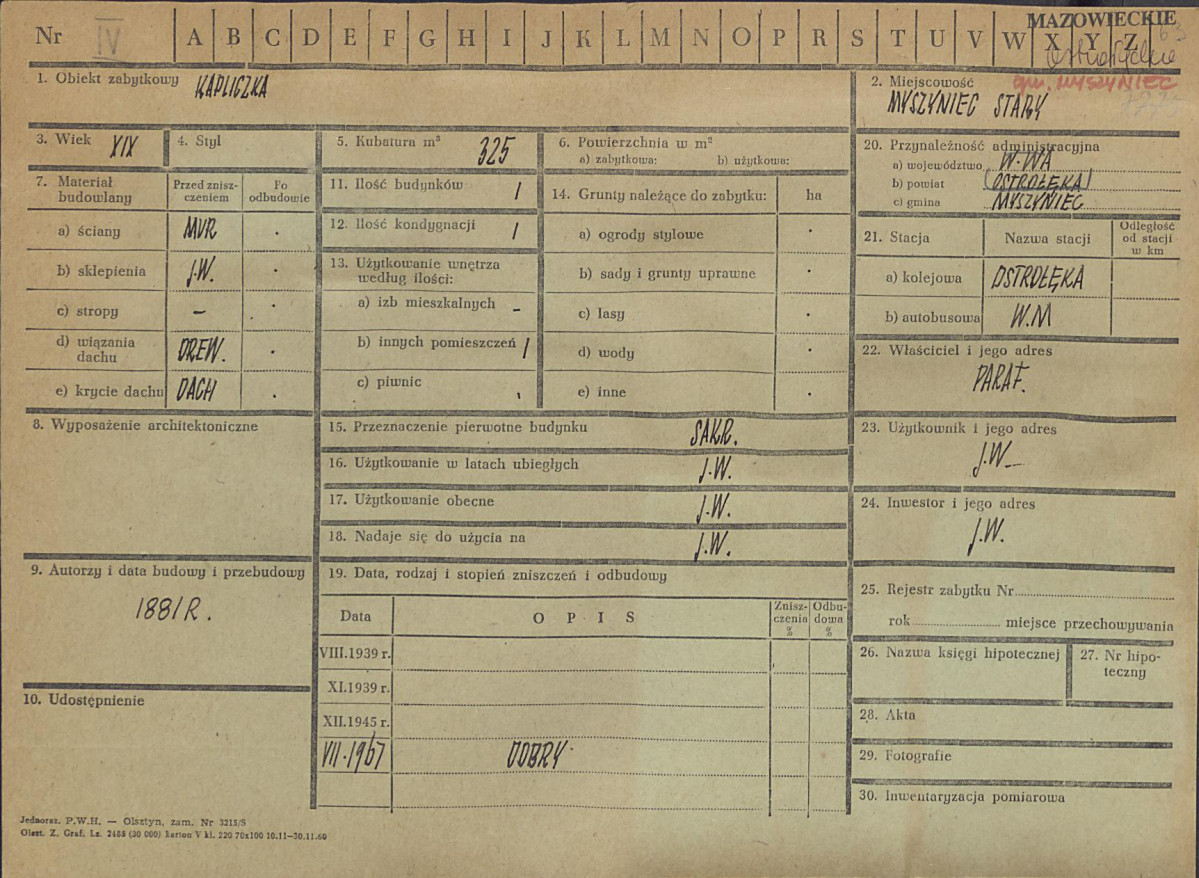 MAZOWIECKIE
Nr IV A B C D E F G H I J K L M N O P R S T U V W X Y Z
63
gm. MYSZYNIEC
1. Obiekt zabytkowy KAPLICZKA
2. Miejscowość
MYSZYNIEC STARY
3. Wiek XIX
4. Styl
5. Kubatura m³ 325
6. Powierzchnia w m²
a) zabytkowa: b) użytkowa:
20. Przynależność administracyjna
a) województwo W-WA
b) powiat (OSTROŁĘKA)
c) gmina MYSZYNIEC
7. Materiał budowlany
Przed zniszczeniem
Po odbudowie
a) ściany MUR
b) sklepienia J.W.
c) stropy –
d) wiązania dachu DREW.
e) krycie dachu DACH
11. Ilość budynków 1
12. Ilość kondygnacji 1
13. Użytkowanie wnętrza według ilości:
a) izb mieszkalnych –
b) innych pomieszczeń 1
c) piwnic
14. Grunty należące do zabytku: ha
a) ogrody stylowe
b) sady i grunty uprawne
c) lasy
d) wody
e) inne
21. Stacja
Nazwa stacji
Odległość od stacji w km
a) kolejowa OSTROŁĘKA
b) autobusowa W.M
22. Właściciel i jego adres
PARAF.
8. Wyposażenie architektoniczne
15. Przeznaczenie pierwotne budynku SAKR.
16. Użytkowanie w latach ubiegłych J.W.
17. Użytkowanie obecne J.W.
18. Nadaje się do użycia na J.W.
23. Użytkownik i jego adres
J.W.
24. Inwestor i jego adres
J.W.
9. Autorzy i data budowy i przebudowy
1881 R.
10. Udostępnienie
19. Data, rodzaj i stopień zniszczeń i odbudowy
Data OPIS Zniszczenia % Odbudowa %
VIII.1939 r.
XI.1939 r.
XII.1945 r.
VII.1967 DOBRY
25. Rejestr zabytku Nr
rok miejsce przechowywania
26. Nazwa księgi hipotecznej
27. Nr hipoteczny
28. Akta
29. Fotografie
30. Inwentaryzacja pomiarowa
Jednoraz. P.W.H. — Olsztyn, zam. Nr 3215/S
Olszt. Z. Graf. Lz. 2488 (30 000) karton V kl. 220 70x100 10.11—30.11.60